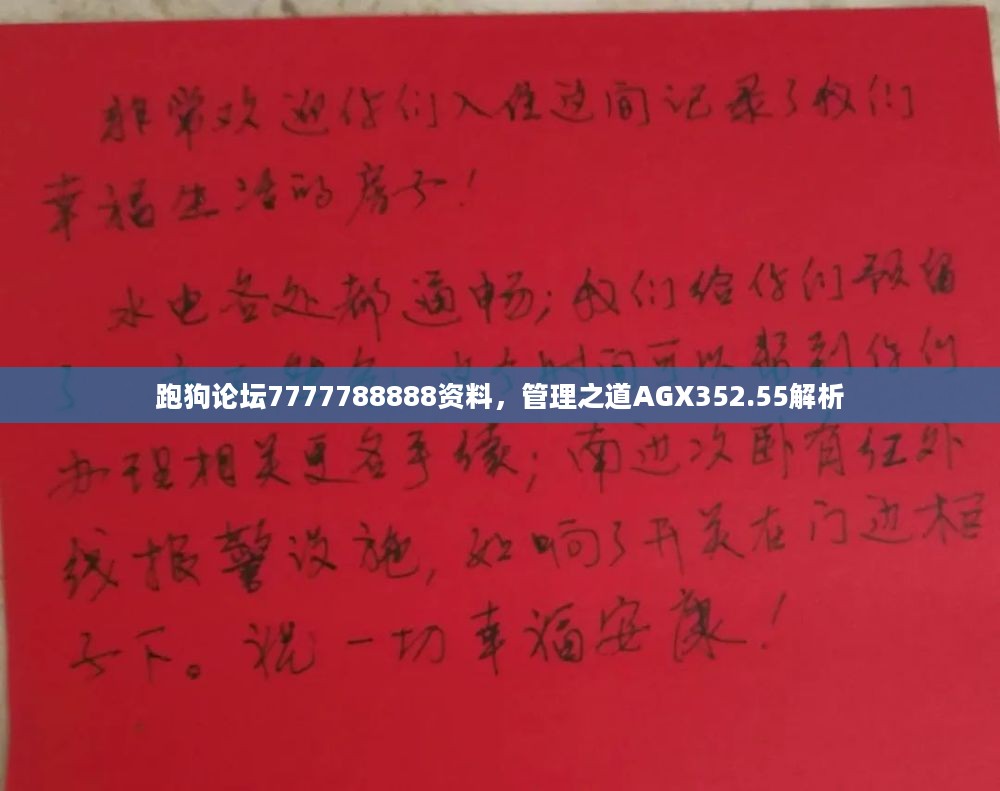 非常欢迎你们入住这间记录了我们
幸福生活的房子！
水电各处都通畅；我们给你们预留
了
时间可以帮到你们
跑狗论坛7777788888资料，管理之道AGX352.55解析
办理相关更名手续；南边次卧有红外
线报警设施，如响了开关在门边柜
子下。祝一切幸福安康！